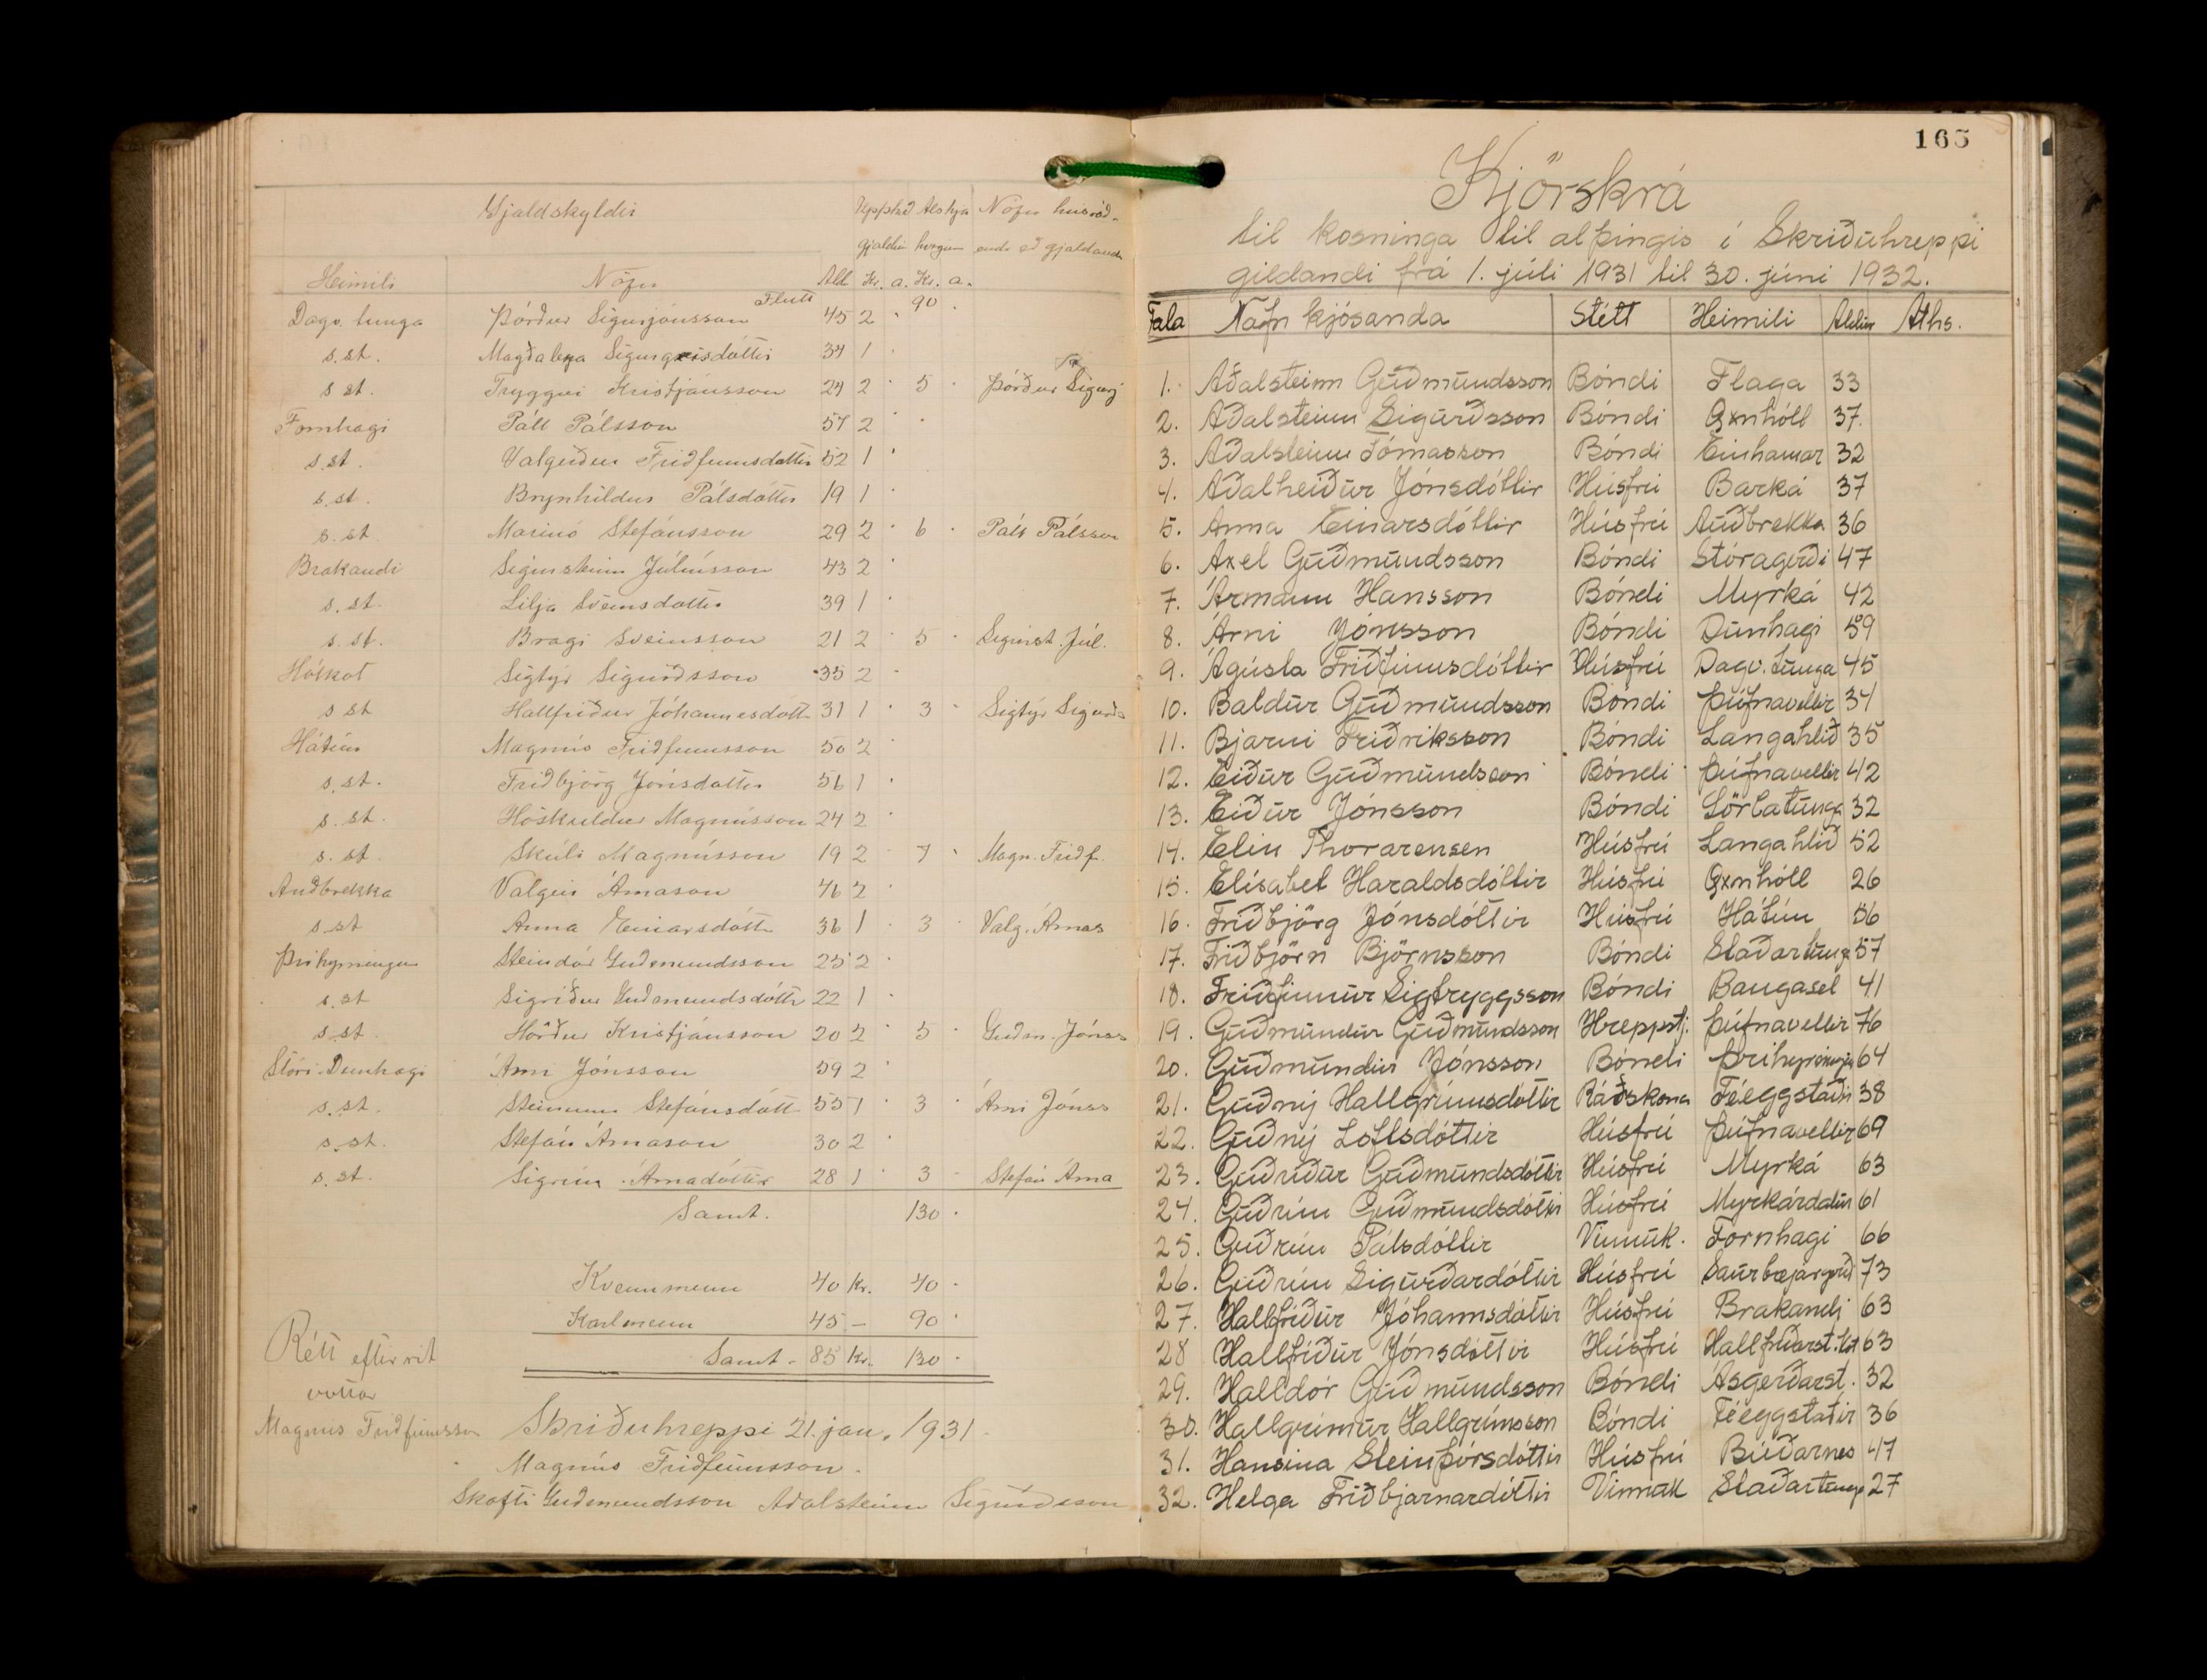 Gjaldskyldir
Upphæð Alls hjá Nöfn húsráð-
gjaldsin hverjum enda eð gjaldanda
Heimili Nöfn Ald. Kr. a. Kr. a.
Flutt 90 .
Dagv. tunga Þórður Sigurjónsson 45 2
s.st. Magðalena Sigurgeirsdóttir 34 1
s st. Tryggvi Kristjánsson 24 2 5 Þórður Sigurj
Fornhagi Páll Pálsson 57 2
s.st. Valgerður Friðfinnsdóttir 52 1
s.st. Brynhildur Pálsdóttir 19 1
s.st. Marinó Stefánsson 29 2 6 Páll Pálsson
Brakandi Sigursteinn Júlíusson 43 2
s.st. Lilja Sveinsdóttir 39 1
s.st. Bragi Sveinsson 21 2 5 Sigurst. Júl.
Hólkot Sigtýr Sigurðsson 35 2
s st Hallfríður Jóhannesdótt 31 1 3 Sigtýr Sigurðs
Hátún Magnús Friðfinnsson 50 2
s.st. Friðbjörg Jónsdóttir 56 1
s.st. Höskuldur Magnússon 24 2
s.st. Skúli Magnússon 19 2 7 Magn. Friðf.
Auðbrekka Valgeir Árnason 46 2
s.st Anna Einarsdótti 36 1 3 Valg. Árnas
Þríhyrningur Steindór Guðmundsson 25 2
s.st Sigríður Guðmundsdóttir 22 1
s.st. Hörður Kristjánsson 20 2 5 Guðm. Jónss
Stóri-Dunhagi Árni Jónsson 59 2
s.st. Steinunn Stefánsdótt 55 1 3 Árni Jónss
s.st. Stefán Árnason 30 2
s.st. Sigrún Árnadóttir 28 1 3 Stefán Árna
Samt. 130 .
Kvennmenn 40 Kr. 40 -
Karlmenn 45 - 90 .
Samt. 85 Kr. 130 .
Rétt eftirrit
vottar
Magnús Friðfinnsson
Skriðuhreppi 21. jan. 1931.
Magnús Friðfinnsson.
Skafti Guðmundsson Aðalsteinn Sigurðsson
163
Kjörskrá
til kosninga til alþingis í Skriðuhreppi
gildandi frá 1. júlí 1931 til 30. júní 1932.
Tala Nafn kjósanda Stétt Heimili Aldur Aths.
1. Aðalsteinn Guðmundsson Bóndi Flaga 33
2. Aðalsteinn Sigurðsson Bóndi Öxnhóll 37.
3. Aðalsteinn Tómasson Bóndi Einhamar 32
4. Aðalheiður Jónsdóttir Húsfrú Barká 37
5. Anna Einarsdóttir Húsfrú Auðbrekka 36
6. Axel Guðmundsson Bóndi Stóragerði 47
7. Ármann Hansson Bóndi Myrká 42
8. Árni Jónsson Bóndi Dunhagi 59
9. Ágústa Friðfinnsdóttir Húsfrú Dagv. tunga 45
10. Baldur Guðmundsson Bóndi Þúfnavellir 34
11. Bjarni Friðriksson Bóndi Langahlíð 35
12. Eiður Guðmundsson Bóndi Þúfnavellir 42
13. Eiður Jónsson Bóndi Sörlatunga 32
14. Elin Thorarensen Húsfrú Langahlíð 52
15. Elísabet Haraldsdóttir Húsfrú Öxnhóll 26
16. Friðbjörg Jónsdóttir Húsfrú Hátún 56
17. Friðbjörn Björnsson Bóndi Staðartunga 57
18. Friðfinnur Sigtryggsson Bóndi Baugasel 41
19. Guðmundur Guðmundsson Hreppstj. Þúfnavellir 76
20. Guðmundur Jónsson Bóndi Þríhyrningur 64
21. Guðný Hallgrímsdóttir Ráðskona Féeggstaðir 38
22. Guðný Loftsdóttir Húsfrú Þúfnavellir 69
23. Guðríður Guðmundsdóttir Húsfrú Myrká 63
24. Guðrún Guðmundsdóttir Húsfrú Myrkárdalur 61
25. Guðrún Pálsdóttir Vinnuk. Fornhagi 66
26. Guðrún Sigurðardóttir Húsfrú Saurbæjargerði 73
27. Hallfríður Jóhannsdóttir Húsfrú Brakandi 63
28 Hallfríður Jónsdóttir Húsfrú Hallfríðarst.kot 63
29. Halldór Guðmundsson Bóndi Ásgerðarst. 32
30. Hallgrímur Hallgrímsson Bóndi Féeggstaðir 36
31. Hansína Steinþórsdóttir Húsfrú Búðarnes 47
32. Helga Friðbjarnardóttir Vinnuk Staðartunga 27